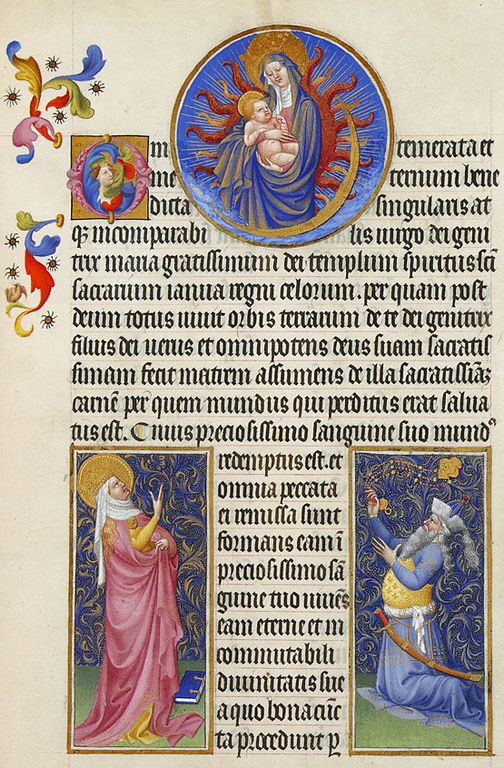 O in temerata et
in e ternum bene
dicta singularis at
q; incomparabi lis uirgo dei geni
trix maria gratissimum dei templum spiritus sc̄i
sacrarium ianua regni celorum. per quam post
deum totus uiuit orbis terrarum de te dei genitrix
filius dei uerus et omnipotens deus suam sacratis
simam fecit meitrem assumens de illa sacratissimā
carnē per quem mundus qui perditus erat salua
tus est. Cuius preciosissimo sanguine suo mundꝰ
redemptus est. et
omnia peccata
ei remissa sunt
formans eam ī
preciosissimo sā
guine tuo uiuēs
eam eterne et in
commutabili
diuinitatis sue
a quo bona cūc
ta procedunt ꝑ